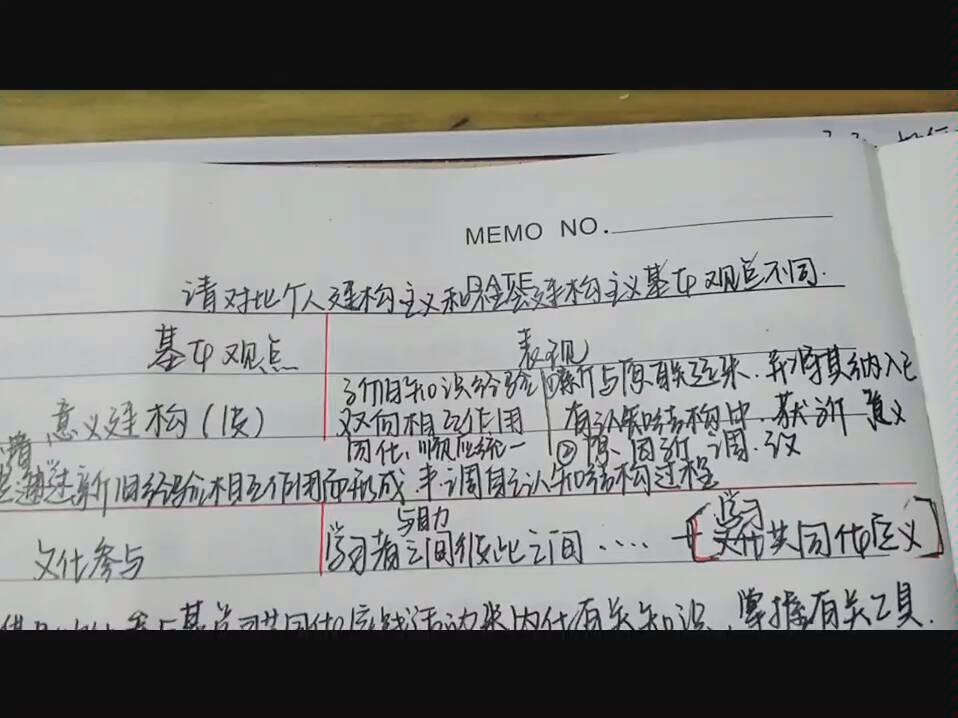 MEMO NO.
DATE
请对比个人建构主义和社会建构主义基本观点不同.
基本观点 表现
新旧知识经验 ①新与原有联系.并将其纳入已
意义建构(传) 双向相互作用 有认知结构中.获新意义
同化、顺应统一 ②原因新调.议
通过新旧经验相互作用而形成.丰.调自己认知结构过程
与助 学习
文化参与 学习者之间彼此之间.... 共同体定义
参与某 共同体 实践活动来内化有关知识,掌握有关工具.